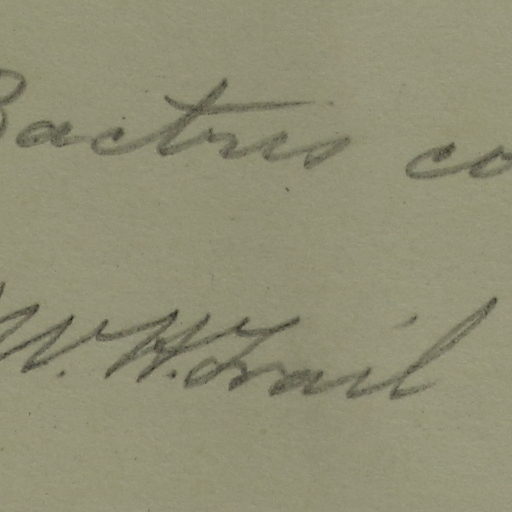 Bactris co
W. H. Trail